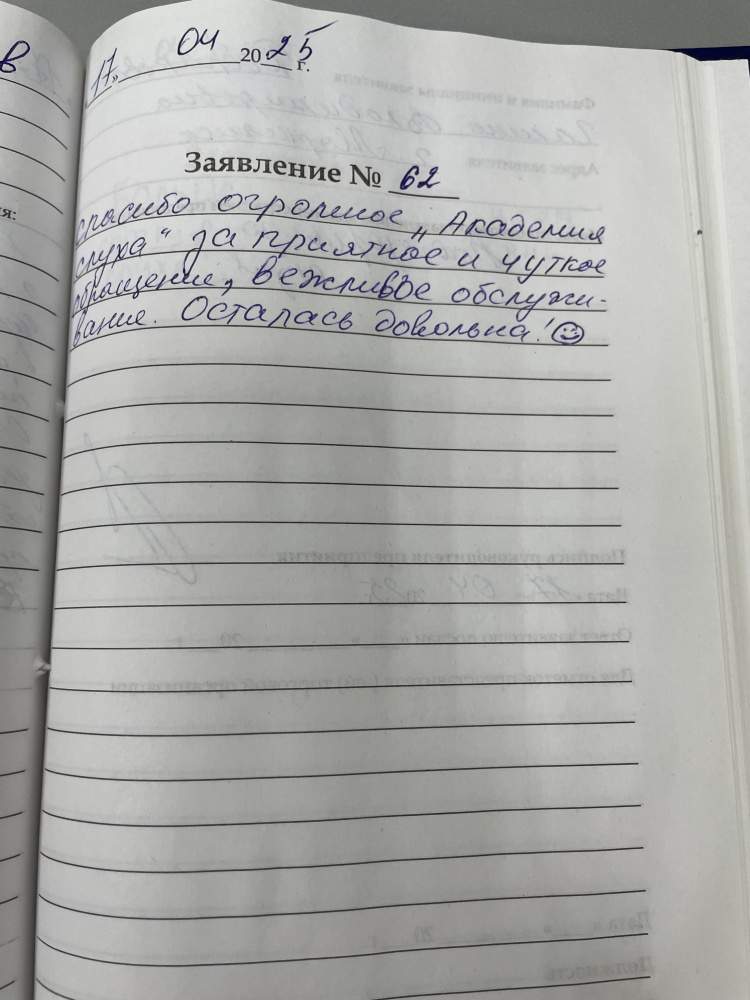 в
я:
17» 04 2025 г.
Заявление № 62
спасибо огромное „Академия
слуха" за приятное и чуткое
обращение, вежливое обслужи-
вание. Осталась довольна! ☺